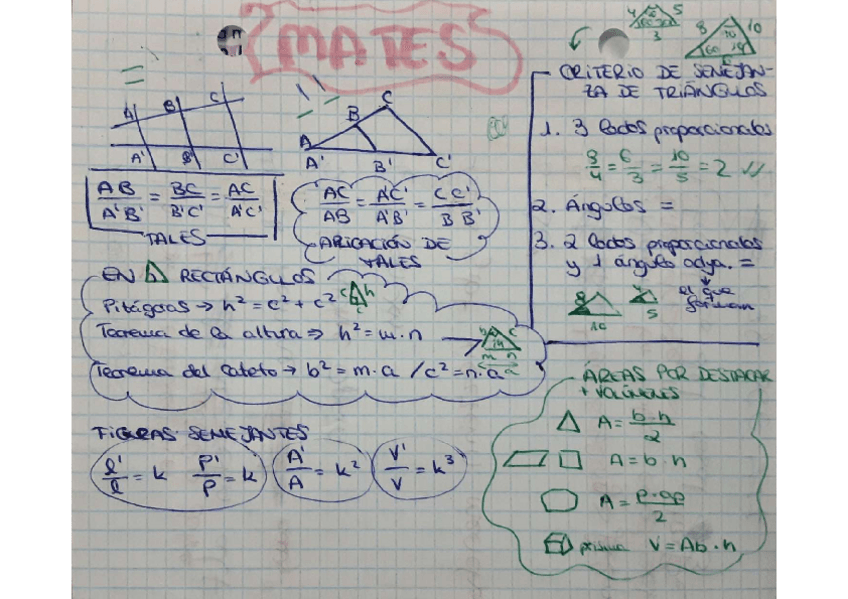 MATES
A B C
A' B' C'
AB/A'B' = BC/B'C' = AC/A'C'
TALES
A B C
A' B' C'
AC/AB = A'C'/A'B' = CC'/BB'
APLICACIÓN DE
TALES
4 5
3
8 10
6
CRITERIO DE SEMEJAN-
ZA DE TRIÁNGULOS
1. 3 lados proporcionales
8/4 = 6/3 = 10/5 = 2
2. Ángulos =
3. 2 lados proporcionales
y 1 ángulo adya. =
el que
forman
8 10 4 5
EN RECTÁNGULOS
Pitágoras → h² = c² + c²
c h
c
Teorema de la altura ⇒ h² = m·n
b c
h
m n
a
Teorema del cateto → b² = m·a / c² = n·a
FIGURAS SEMEJANTES
l'/l = k P'/P = k A'/A = k² V'/V = k³
ÁREAS POR DESTACAR
+ VOLÚMENES
A = b·h/2
A = b·h
A = P·ap/2
prisma V = Ab·h